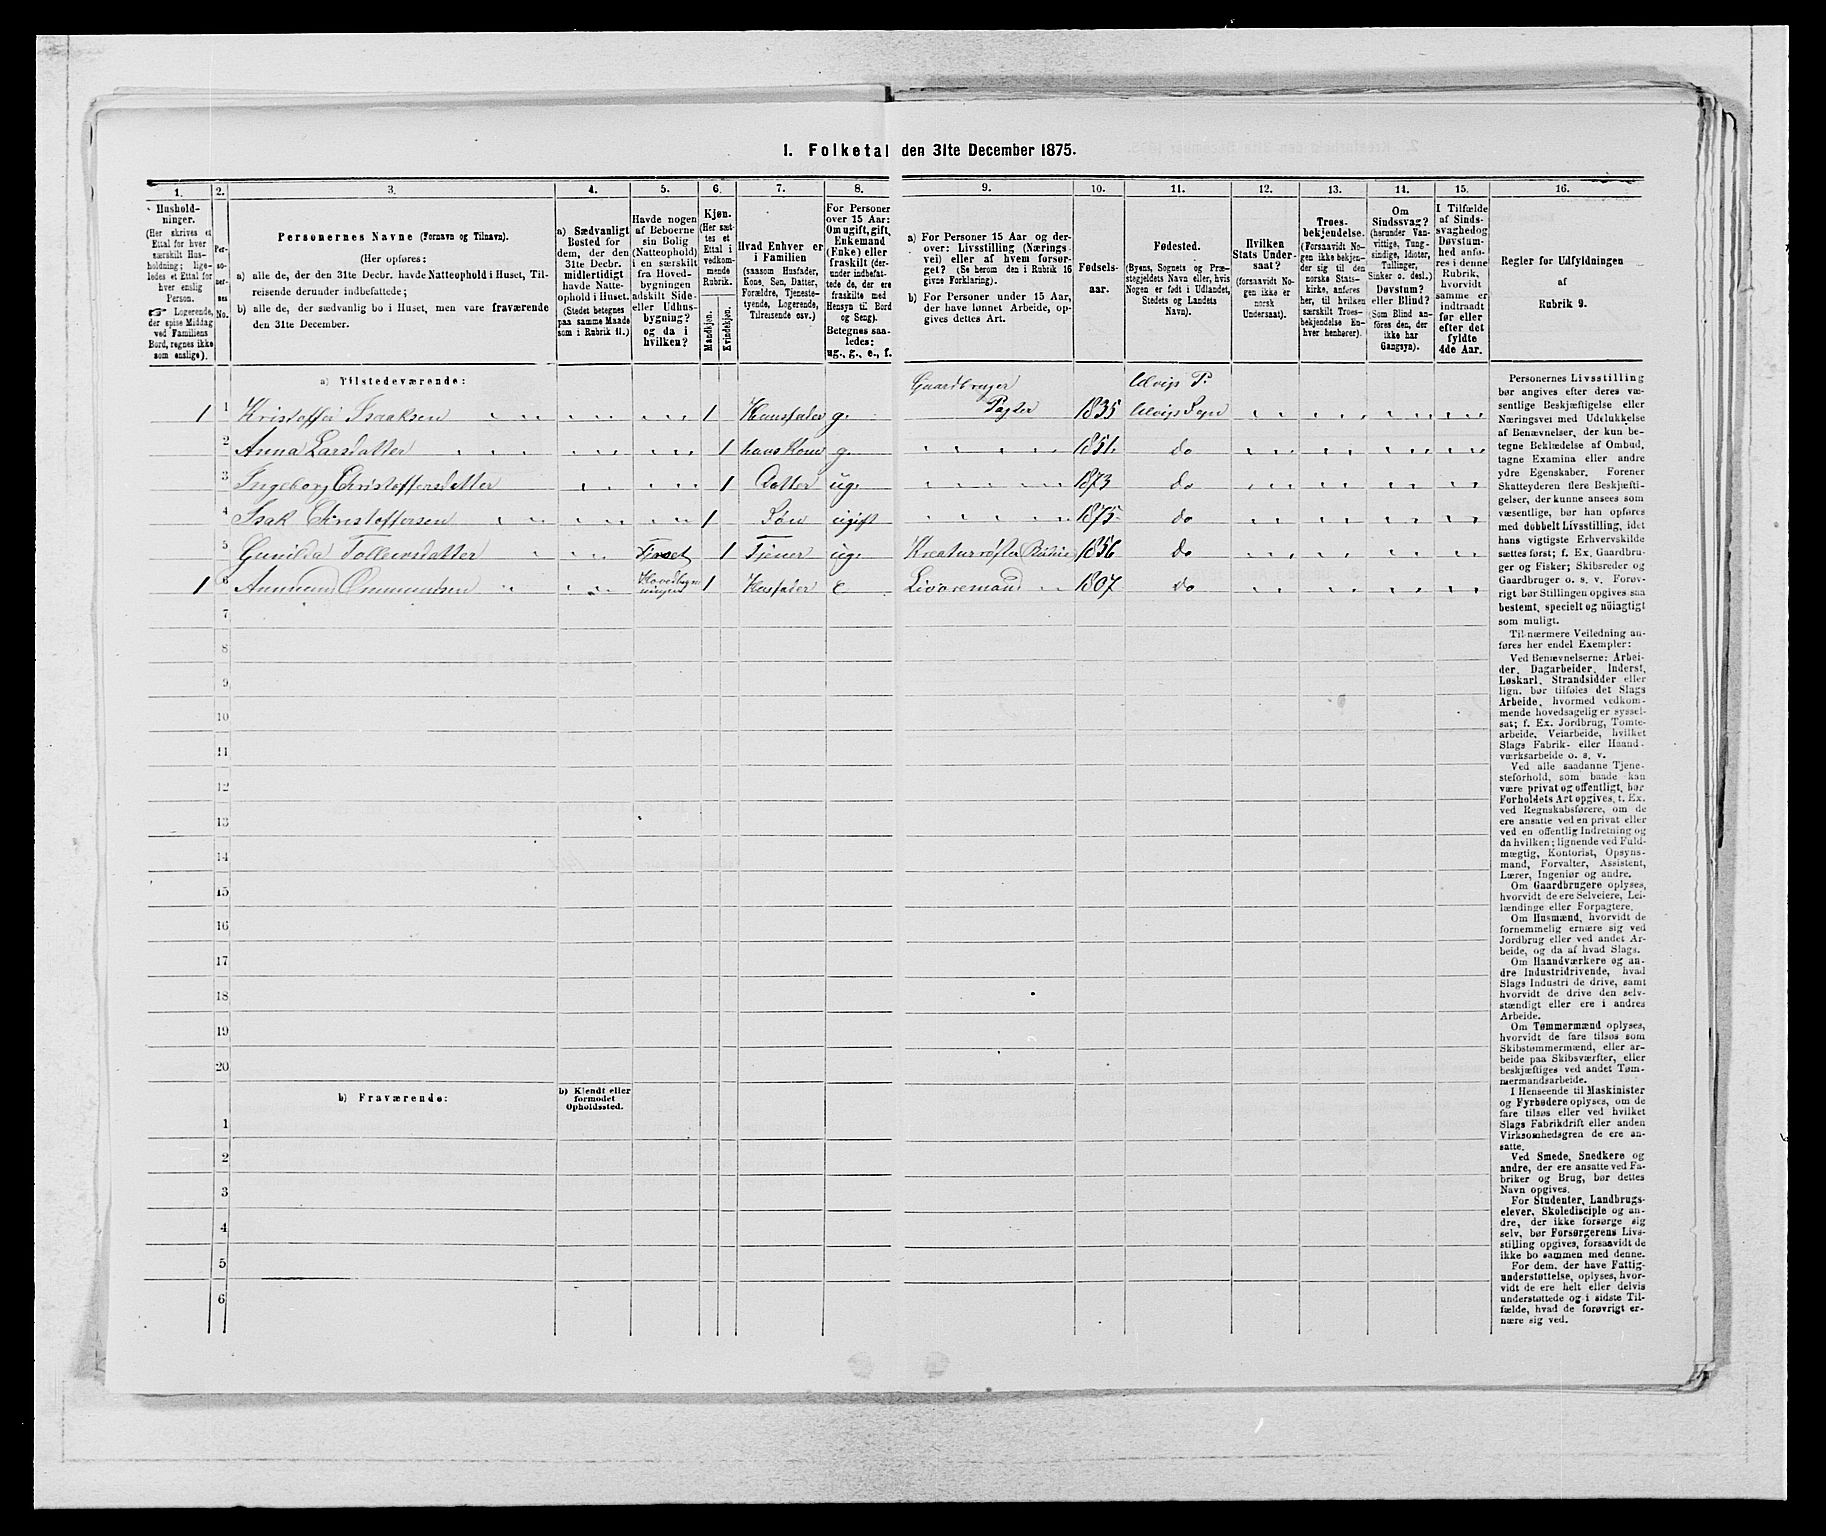 I. Folketal den 31te December 1875.
1. 2. 3. 4. 5. 6. 7. 8. 9. 10. 11. 12. 13. 14. 15. 16.
Husholdninger.
(Her skrives et
Ettal for hver
særskilt Husholdning;
ligeledes et Ettal for
hver enslig
Person.
☞ Logerende,
der spise Middag
ved Familiens
Bord, regnes ikke
som enslige).
Personernes No.
Personernes Navne (Fornavn og Tilnavn).
(Her opføres:
a) alle de, der den 31te Decbr. havde Natteophold i Huset, Tilreisende derunder indbefattede;
b) alle de, der sædvanlig bo i Huset, men vare fraværende
den 31te December.
a) Sædvanligt
Bosted for
dem, der den
31te Decbr.
midlertidigt
havde Natteophold
i Huset.
(Stedet betegnes
paa samme Maade
som i Rubrik 11.)
Havde nogen
af Beboerne
sin Bolig
(Natteophold)
i en særskilt
fra Hovedbygningen
adskilt Side-
eller Udhusbygning?
og da i
hvilken?
Kjøn.
(Her sættes et
Ettal i
vedkommende
Rubrik.
Mandkjøn.
Kvindekjøn.
Hvad Enhver er
i Familien
(saasom Husfader,
Kone, Søn, Datter,
Forældre, Tjenestetyende, Logerende,
Tilreisende osv.)
For Personer
over 15 Aar:
Om ugift, gift,
Enkemand
(Enke) eller
fraskilt (derunder indbefattede de, der ere
fraskilte med
Hensyn til Bord
og Seng).
Betegnes saaledes:
ug., g., e., f.
a) For Personer 15 Aar og derover: Livsstilling (Næringsvei) eller af hvem forsørget? (Se herom den i Rubrik 16
givne Forklaring).
b) For Personer under 15 Aar,
der have lønnet Arbeide, opgives dettes Art.
Fødselsaar.
Fødested.
(Byens, Sognets og Præstegjeldets Navn eller, hvis
Nogen er født i Udlandet,
Stedets og Landets
Navn).
Hvilken
Stats Undersaat?
(forsaavidt Nogen ikke er
norsk
Undersaat).
Troesbekjendelse.
(Forsaavidt Nogen ikke bekjender sig til den
norske Statskirke, anføres
her, til hvilken
særskilt Troesbekjendelse Enhver henhører).
Om
Sindssvag?
(herunder Vanvittige, Tungsindige, Idioter,
Tullinger,
Sinker o. desl.)
Døvstum?
eller Blind?
(Som Blind anføres den, der
ikke har
Gangsyn).
I Tilfælde
af Sindssvaghed og
Døvstumhed anføres i denne
Rubrik,
hvorvidt
samme er
indtraadt
før eller
efter det
fyldte
4de Aar.
Regler for Udfyldningen
af
Rubrik 9.
a) Tilstedeværende:
Gaardbruger Ulvigs P.
1 1 Kristoffer Isaaksen 1 Huusfader g. Pagter 1835 Ulvigs Sogn
2 Anna Larsdatter 1 hans Kone g. 1851 do
3 Ingeborg Christoffersdatter 1 Datter ug. 1873 do
4 Isak Christoffersen 1 Søn ugift 1875 do
5 Gunilda Tollevsdatter 1 Tjener ug. 1856 do
1 6 Ommundsen 1 Husfader e 1807 do
7
8
9
10
11
12
13
14
15
16
17
18
19
20
b) Fraværende:
b) Kjendt eller
formodet
Opholdssted.
1
2
3
4
5
6
Personernes Livsstilling
bør angives efter deres væsentlige Beskjæftigelse eller
Næringsvei med Udelukkelse
af Benævnelser, der kun betegne Beklædelse af Ombud,
tagne Examina eller andre
ydre Egenskaber. Forener
Skatteyderen flere Beskjæftigelser, der kunne ansees som
væsentlige, bør han opføres
med dobbelt Livsstilling, idet
hans vigtigste Erhvervskilde
sættes først; f. Ex. Gaardbruger og Fisker; Skibsreder og
Gaardbruger o. s. v. Forøvrigt bør Stillingen opgives saa
bestemt, specielt og nöiagtigt
som muligt.
Til nærmere Veiledning anføres her endel Exempler:
Ved Benævnelserne: Arbeider, Dagarbeider, Inderst,
Løskarl, Strandsidder eller
lign. bør tilføies det Slags
Arbeide, hvormed vedkommende hovedsagelig er sysselsat; f. Ex. Jordbrug, Tomtearbeide, Veiarbeide, hvilket
Slags Fabrik- eller Haandværksarbeide o. s. v.
Ved alle saadanne Tjenesteforhold, som baade kan
være privat og offentligt, bør
Forholdets Art opgives, f. Ex.
ved Regnskabsførere, om de
ere ansatte ved en privat eller
ved en offentlig Indretning og
da hvilken; lignende ved Fuldmægtig, Kontorist, Opsynsmand, Forvalter, Assistent,
Lærer, Ingeniør og andre.
Om Gaardbrugere oplyses,
hvorvidt de ere Selveiere, Leilændinge eller Forpagtere.
Om Husmænd, hvorvidt de
fornemmelig ernære sig ved
Jordbrug eller ved andet Arbeide, og da af hvad Slags.
Om Haandværkere og andre Industridrivende, hvad
Slags Industri de drive, samt
hvorvidt de drive den selvstændigt eller ere i andres
Arbeide.
Om Tømmermænd oplyses,
hvorvidt de fare tilsøs som
Skibstømmermænd, eller arbeide paa Skibsværfter, eller
beskjæftiges ved andet Tømmermandsarbeide.
I Henseende til Maskinister
og Fyrbødere oplyses, om de
fare tilsøs eller ved hvilket
Slags Fabrikdrift eller anden
Virksomhedsgren de ere ansatte.
Ved Smede, Snedkere og
andre, der ere ansatte ved Fabriker og Brug, bør dettes
Navn opgives.
For Studenter, Landbrugselever, Skoledisciple og andre, der ikke forsørge sig
selv, bør Forsørgerens Livsstilling opgives, forsaavidt de
ikke bo sammen med denne.
For dem, der have Fattigunderstøttelse, oplyses, hvorvidt de ere helt eller delvis
understøttede og i sidste Tilfælde, hvad de forøvrigt ernære sig ved.